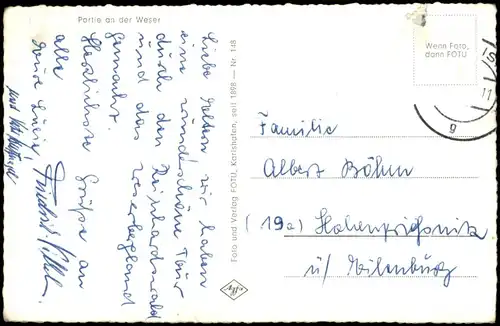 Partie an der Weser
Liebe Eltern, wir haben
eine wunderschöne Tour
durch den Reinhardswald
und das Weserbergland
gemacht.
Herzlichste Grüße an
alle
Eure Luise,
Friedrich
und
Foto und Verlag FOTU, Karlshafen, seit 1898 — Nr. 148
Wenn Foto,
dann FOTU
11
g
Familie
Albert Böhm
(19a) Hohenprießnitz
ü/ Eilenburg